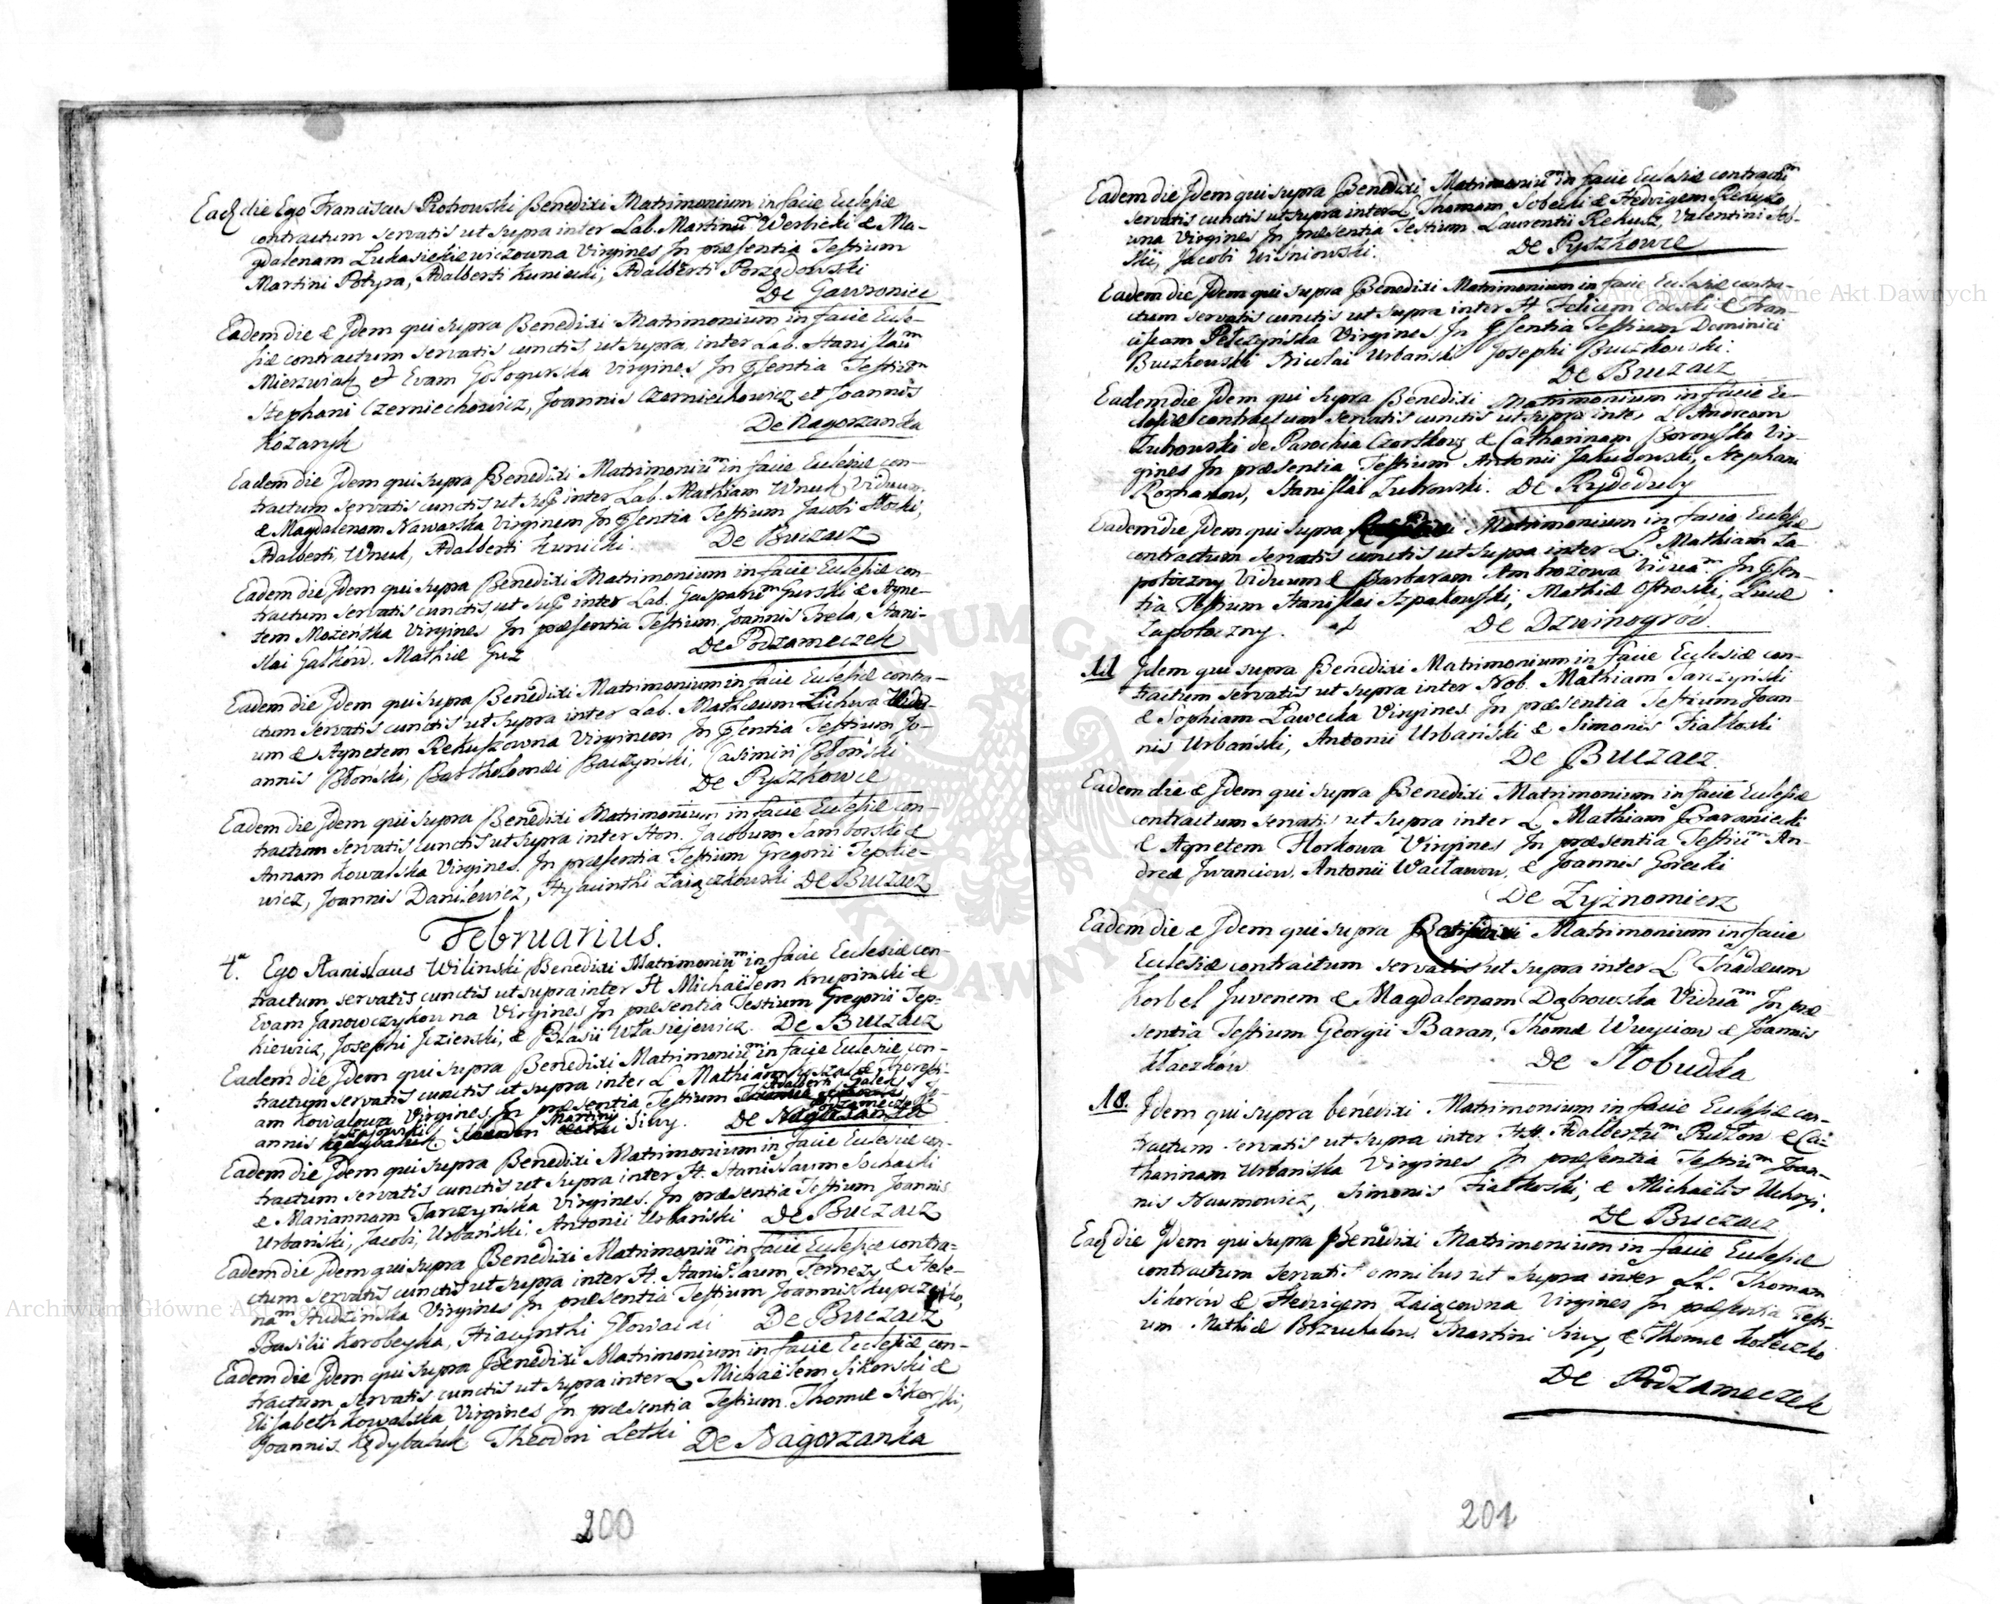 Eadem die Ego Franciscus Piotrowski Benedixi Matrimonium in facie Eclesiæ
contractum servatis ut supra inter Lab. Martinum Werbicki & Ma-
gdalenam Lukasiekiewiczowna Virgines In præsentia Testium
Martini Potyra, Adalberti Kuniecki, Adalberti Porzędowski
De Gawroniec
Eadem die & Idem qui supra Benedixi Matrimonium in facie Ecle-
siæ contractum servatis cunctis, ut supra, inter Lab. Stanislaum
Mierzwiak et Evam Gologurska Virgines In Psentia Testium
Stephani Czerniechowicz, Joannis Czerniechowicz et Joannis
Kozaryk
De Nagorzanka
Eadem die Idem qui supra Benedixi Matrimonium in facie Eclesiæ con-
tractum servatis cunctis, ut sup inter Lab. Mathiam Wnuk Viduum
& Magdalenam Nawarska Virginem In Psentia Testium Jacobi
Adalberti Wnuk, Adalberti Kunicki. De Buczacz
Eadem die Idem qui supra Benedixi Matrimonium in facie Eclesiæ con-
tractum servatis cunctis, ut sup inter Lab. Gasparum Gurski & Agne-
tem Mozenska Virgines In præsentia Testium Joannis Trela, Stani-
slai Galków, Mathiæ Guz De Podzameczek
Eadem die Idem qui supra Benedixi Matrimonium in facie Eclesiæ contra-
ctum servatis cunctis ut supra inter Lab. Lichwa Vidu-
um & Agnetem Rekuszowna Virginem In Psentia Testium Jo-
annis Błonski, Bartholomæi Baczyński, Casimiri Błonski
De Pyszkowce
Eadem die Idem qui supra Benedixi Matrimonium in facie Eclesiæ con-
tractum servatis cunctis ut supra inter Hon. Jacobum Samborski &
Annam Kowalska Virgines. In præsentia Testium Gregorii Teptie-
wicz, Joannis Danilewicz, Hyacinthi Zaiączkowski De Buczacz
Februarius.
4ta. Ego Stanislaus Wilinski Benedixi Matrimonium in facie Ecclesiæ con-
tractum servatis cunctis ut supra inter H Michaëlem Krupinski &
Evam Janowczykowna Virgines In præsentia Testium Gregorii Tep-
kiewicz, Josephi Jezierski, & Blasii Własiejewicz. De Buczacz
Eadem die Idem qui supra Benedixi Matrimonium in facie Eclesiæ con-
tractum servatis cunctis ut supra inter L Mathiam & Theresi-
am Kowalowa Virgines In præsentia Testium Adalberti
annis Martini Siwy. De Podzameczek
Eadem die Idem qui supra Benedixi Matrimonium in facie Eclesiæ con-
tractum servatis cunctis ut supra inter H. Stanislaum Sochacki
& Mariannam Tarczynska Virgines. In præsentia Testium Joannis
Urbański, Jacobi Urbański, Antonii Urbański De Buczacz
Eadem die Idem qui supra Benedixi Matrimonium in facie Eclesiæ contra-
ctum servatis cunctis ut supra inter H. Stanislaum & Hele-
nam Studzinska Virgines In præsentia Testium Joannis
Basilii Korobeyka, Hiacynthi Głowacki De Buczacz
Eadem die Idem qui supra Benedixi Matrimonium in facie Ecclesiæ con-
tractum servatis cunctis ut supra inter L Michaëlem Sikorski &
Elisabeth Kowalska Virgines In præsentia Testium Thomæ Sikorski,
Joannis Kędybaluk Theodori Letki De Nagorzanka
200
Eadem die Idem qui supra Benedixi Matrimonium in facie Eclesiæ contractum
servatis cunctis ut supra inter L. Thomam Sobecki & Hedvigem Rekuszo
wna Virgines In præsentia Testium Laurentii Rekusz, Valentini
ski, Jacobi Wisniowski. De Pyszkowce
Eadem die Idem qui supra Benedixi Matrimonium in facie Eclesiæ contra-
ctum servatis cunctis ut supra inter H. Felicem & Fran-
ciscam Pełczyńska Virgines In Psentia Testium Dominici
Buczkowski Nicolai Urbański Josephi Buczkowski.
De Buczacz
Eadem die Idem qui supra Benedixi Matrimonium in facie Ec-
clesiæ contractum servatis cunctis ut supra inter L Andream
Zubrowski de Parochia Czortkow & Catharinam Borowska Vir-
gines In præsentia Testium Antonii Jakubowski, Stephani
Romanow, Stanislai Zubrowski. De Rydoduby
Eadem die Idem qui supra Matrimonium in facie Eclesiæ
contractum servatis cunctis ut supra inter L. Mathiam Za
potoczny Viduum & Barbaram Ambrozowa Viduam. In Psen-
tia Testium Stanislai Szpakowski, Mathiæ Ostroski, Lucæ
Zapotoczny. De Dzwinogród.
11 Idem qui supra Benedixi Matrimonium in facie Ecclesiæ con-
tractum servatis ut supra inter Nob. Mathiam Tarczyński
& Sophiam Ławecka Virgines In præsentia Testium Joan-
nis Urbański, Antonii Urbański & Simonis Fiałkoski
De Buczacz.
Eadem die & Idem qui supra Benedixi Matrimonium in facie Eclesiæ
contractum servatis ut supra inter L. Mathiam Baraniecki
& Agnetem Horkowa Virgines In præsentia Testium An-
dreæ Iwanciow, Antonii Wacławow, & Joannis Gorecki
De Zyznomierz
Eadem die & Idem qui supra Matrimonium in facie
Ecclesiæ contractum servatis ut supra inter L Thaddæum
Korbel Juvenem & Magdalenam Dąbrowska Viduam In præ
sentia Testium Georgii Baran, Thomæ & Joannis
Kłaczkow De Słobudka
18. Idem qui supra benedixi Matrimonium in facie Eclesiæ con-
tractum servatis ut supra inter HH. Adalbertum & Ca-
tharinam Urbańska Virgines In præsentia Testium Joan-
nis Naumowicz, Simonis Fiałkoski, & Michaëlis
De Buczacz
Eadem die Idem qui supra Benedixi Matrimonium in facie Eclesiæ
contractum servatis omnibus ut supra inter LL. Thomam
Sikorów & Hedvigem Zaiącowna Virgines In præsentia Testi-
um Mathiæ Martini Siwy, & Thomæ
De Podzameczek
201
Archiwum Główne Akt Dawnych
Archiwum Główne Akt Dawnych